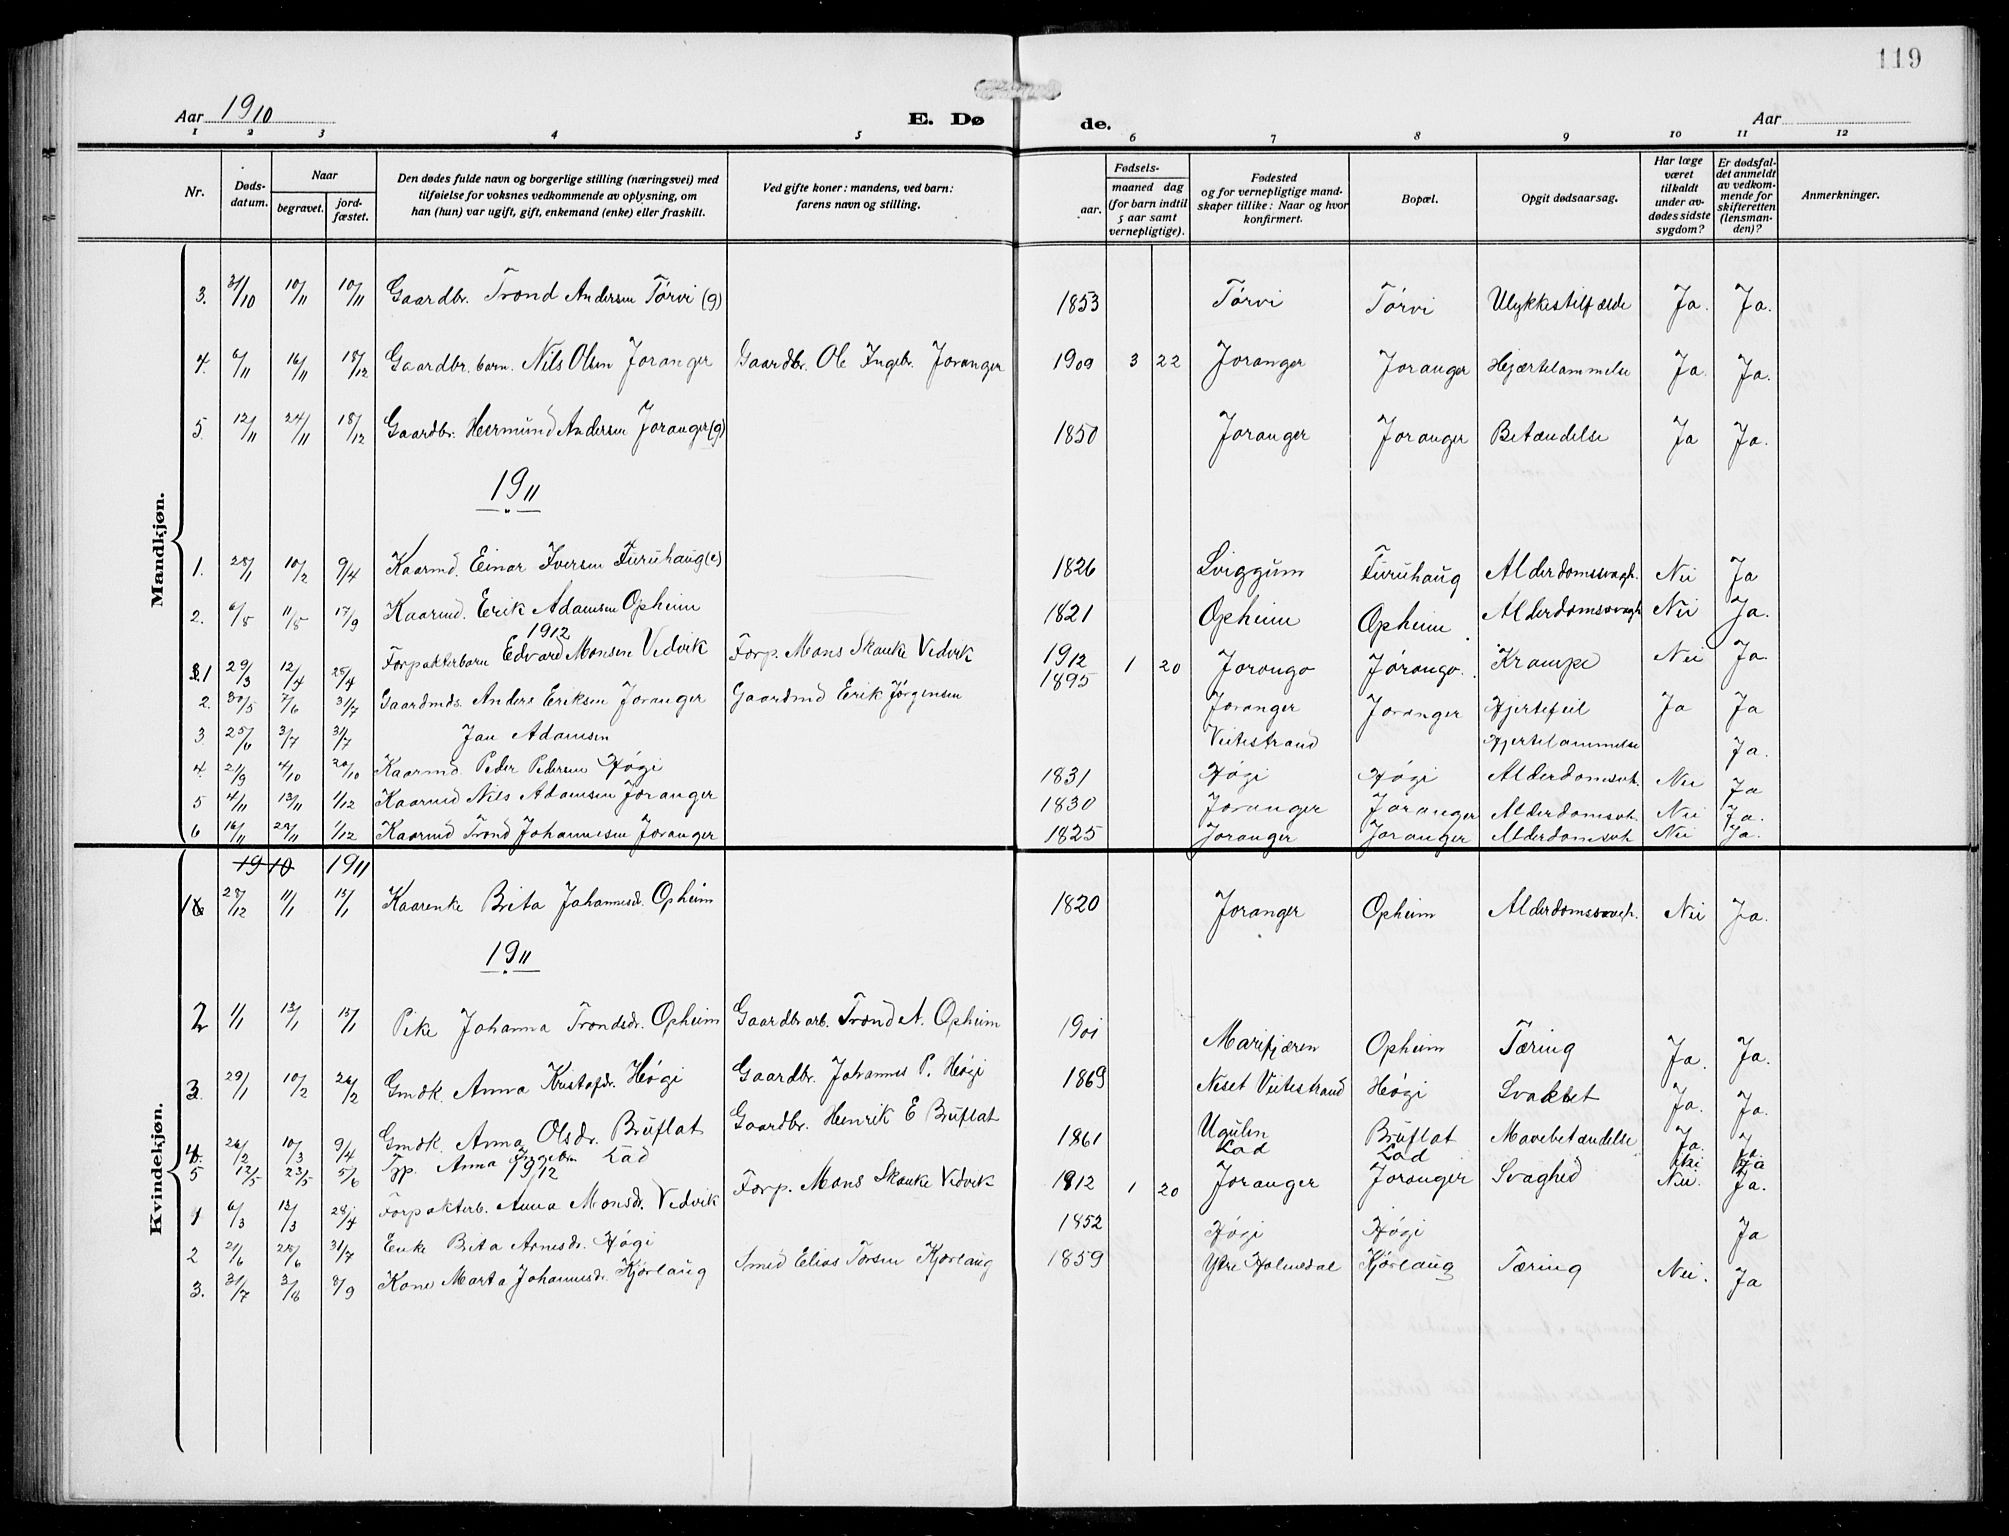 119
Aar 1910 E. Døde. Aar
1 2 3 4 5 6 7 8 9 10 11 12
Nr.
Døds-datum.
Naar
begravet.
jord-fæstet.
Den dødes fulde navn og borgerlige stilling (næringsvei) med
tilføielse for voksnes vedkommende av oplysning, om
han (hun) var ugift, gift, enkemand (enke) eller fraskilt.
Ved gifte koner: mandens, ved barn:
farens navn og stilling.
Fødsels-
aar.
maaned dag
(for barn indtil
5 aar samt
vernepligtige).
Fødested
og for vernepligtige mand-
skaper tillike: Naar og hvor
konfirmert.
Bopæl.
Opgit dødsaarsag.
Har læge
været
tilkaldt
under av-
dødes sidste
sygdom?
Er dødsfal-
det anmeldt
av vedkom-
mende for
skifteretten
(lensman-
den)?
Anmerkninger.
Mandkjøn.
3. 31/10 10/11 10/11 Gaardbr. Trond Andersen Törvi (g) 1853 Törvi Törvi Ulykkestilfælde Ja. Ja.
4. 6/11 16/11 18/12 Gaardbr. barn. Nils Olsen Joranger Gaardbr. Ole Ingebr. Joranger 1909 3 22 Joranger Joranger Hjærtelammelse Ja. Ja.
5 12/11 24/11 18/12 Gaardbr. Hermund Andersen Joranger (g) 1850 Joranger Joranger Betændelse Ja Ja.
1911
1. 28/1 10/2 9/4 Kaarmd. Einar Iversen Furuhaug (e) 1826 Lviggum Furuhaug Alderdomssvagh. Nei Ja
2. 6/5 11/5 17/9 Kaarmd. Erik Adamsen Opheim 1821 Opheim Opheim Alderdomssvagh Nei Ja.
1912
1 29/3 12/4 25/4 Forpakterbarn Edvard Monsen Vedvik Forp. Mons Skauke Vedvik 1912 1 20 Jorango Jorango. Krampe Nei Ja.
2. 30/5 7/6 31/7 Gaardmds. Anders Eriksen Joranger Gaardmd Erik Jørgensen 1895 Joranger Joranger Hjertefeil Ja Ja
3 25/6 3/7 31/7 Jan Adamsen Veitestrand Hjertelammelse Ja.
4. 21/9 4/10 20/10 Kaarmd. Peder Pedersen Høgi 1831 Høgi Høgi Alderdomsvh. Nei Ja
5 4/11 13/11 1/12 Kaarmd Nils Adamsen Joranger 1830 Joranger Joranger Alderdomsvh. Nei Ja.
6 16/11 25/11 1/12 Kaarmd Trond Johannesen Joranger 1825 Joranger Joranger Alderdomsvh Nei Ja.
Kvindekjøn.
1910 1911
1 28/12 11/1 15/1 Kaarenke Brita Johannesdr. Opheim 1820 Joranger Opheim Alderdomssvagh. Nei Ja.
1911
2 1/1 13/1 15/1 Pike Johanna Trondsdr. Opheim Gaardbrarb. Trond A. Opheim 1901 Marifjæren Opheim Tæring Ja. Ja.
3 29/1 10/2 26/2 Gmdk. Anna Kristofdr. Høgi Gaardbr. Johannes P. Høgi 1869 Neset Veitestrand Høgi Svakhet Ja. Ja.
4. 26/2 10/3 9/4 Gmdk. Anna Olsdr. Bruflat Gaardbr. Henrik E Bruflat 1861 Ugulen Bruflat Mavebetændelse Ja. Ja
5 12/5 23/5 5/6 Anna Lad Lad Lad Nei Ja
1912
1 6/3 13/3 28/4 Forpakterb. Anna Monsdr. Vedvik Forp. Mons Skauke Vedvik 1912 1 20 Joranger Joranger Svaghed Nei. Ja.
2 21/6 28/6 31/7 Enke Brita Arnesdr. Høgi 1852 Høgi Høgi Ja
3. 31/7 3/8 8/9 Kone Marta Johannesdr. Kjørlaug Smed Elias Torsen Kjørlaug 1859 Ytre Holmedal Kjørlaug Tæring Nei. Ja